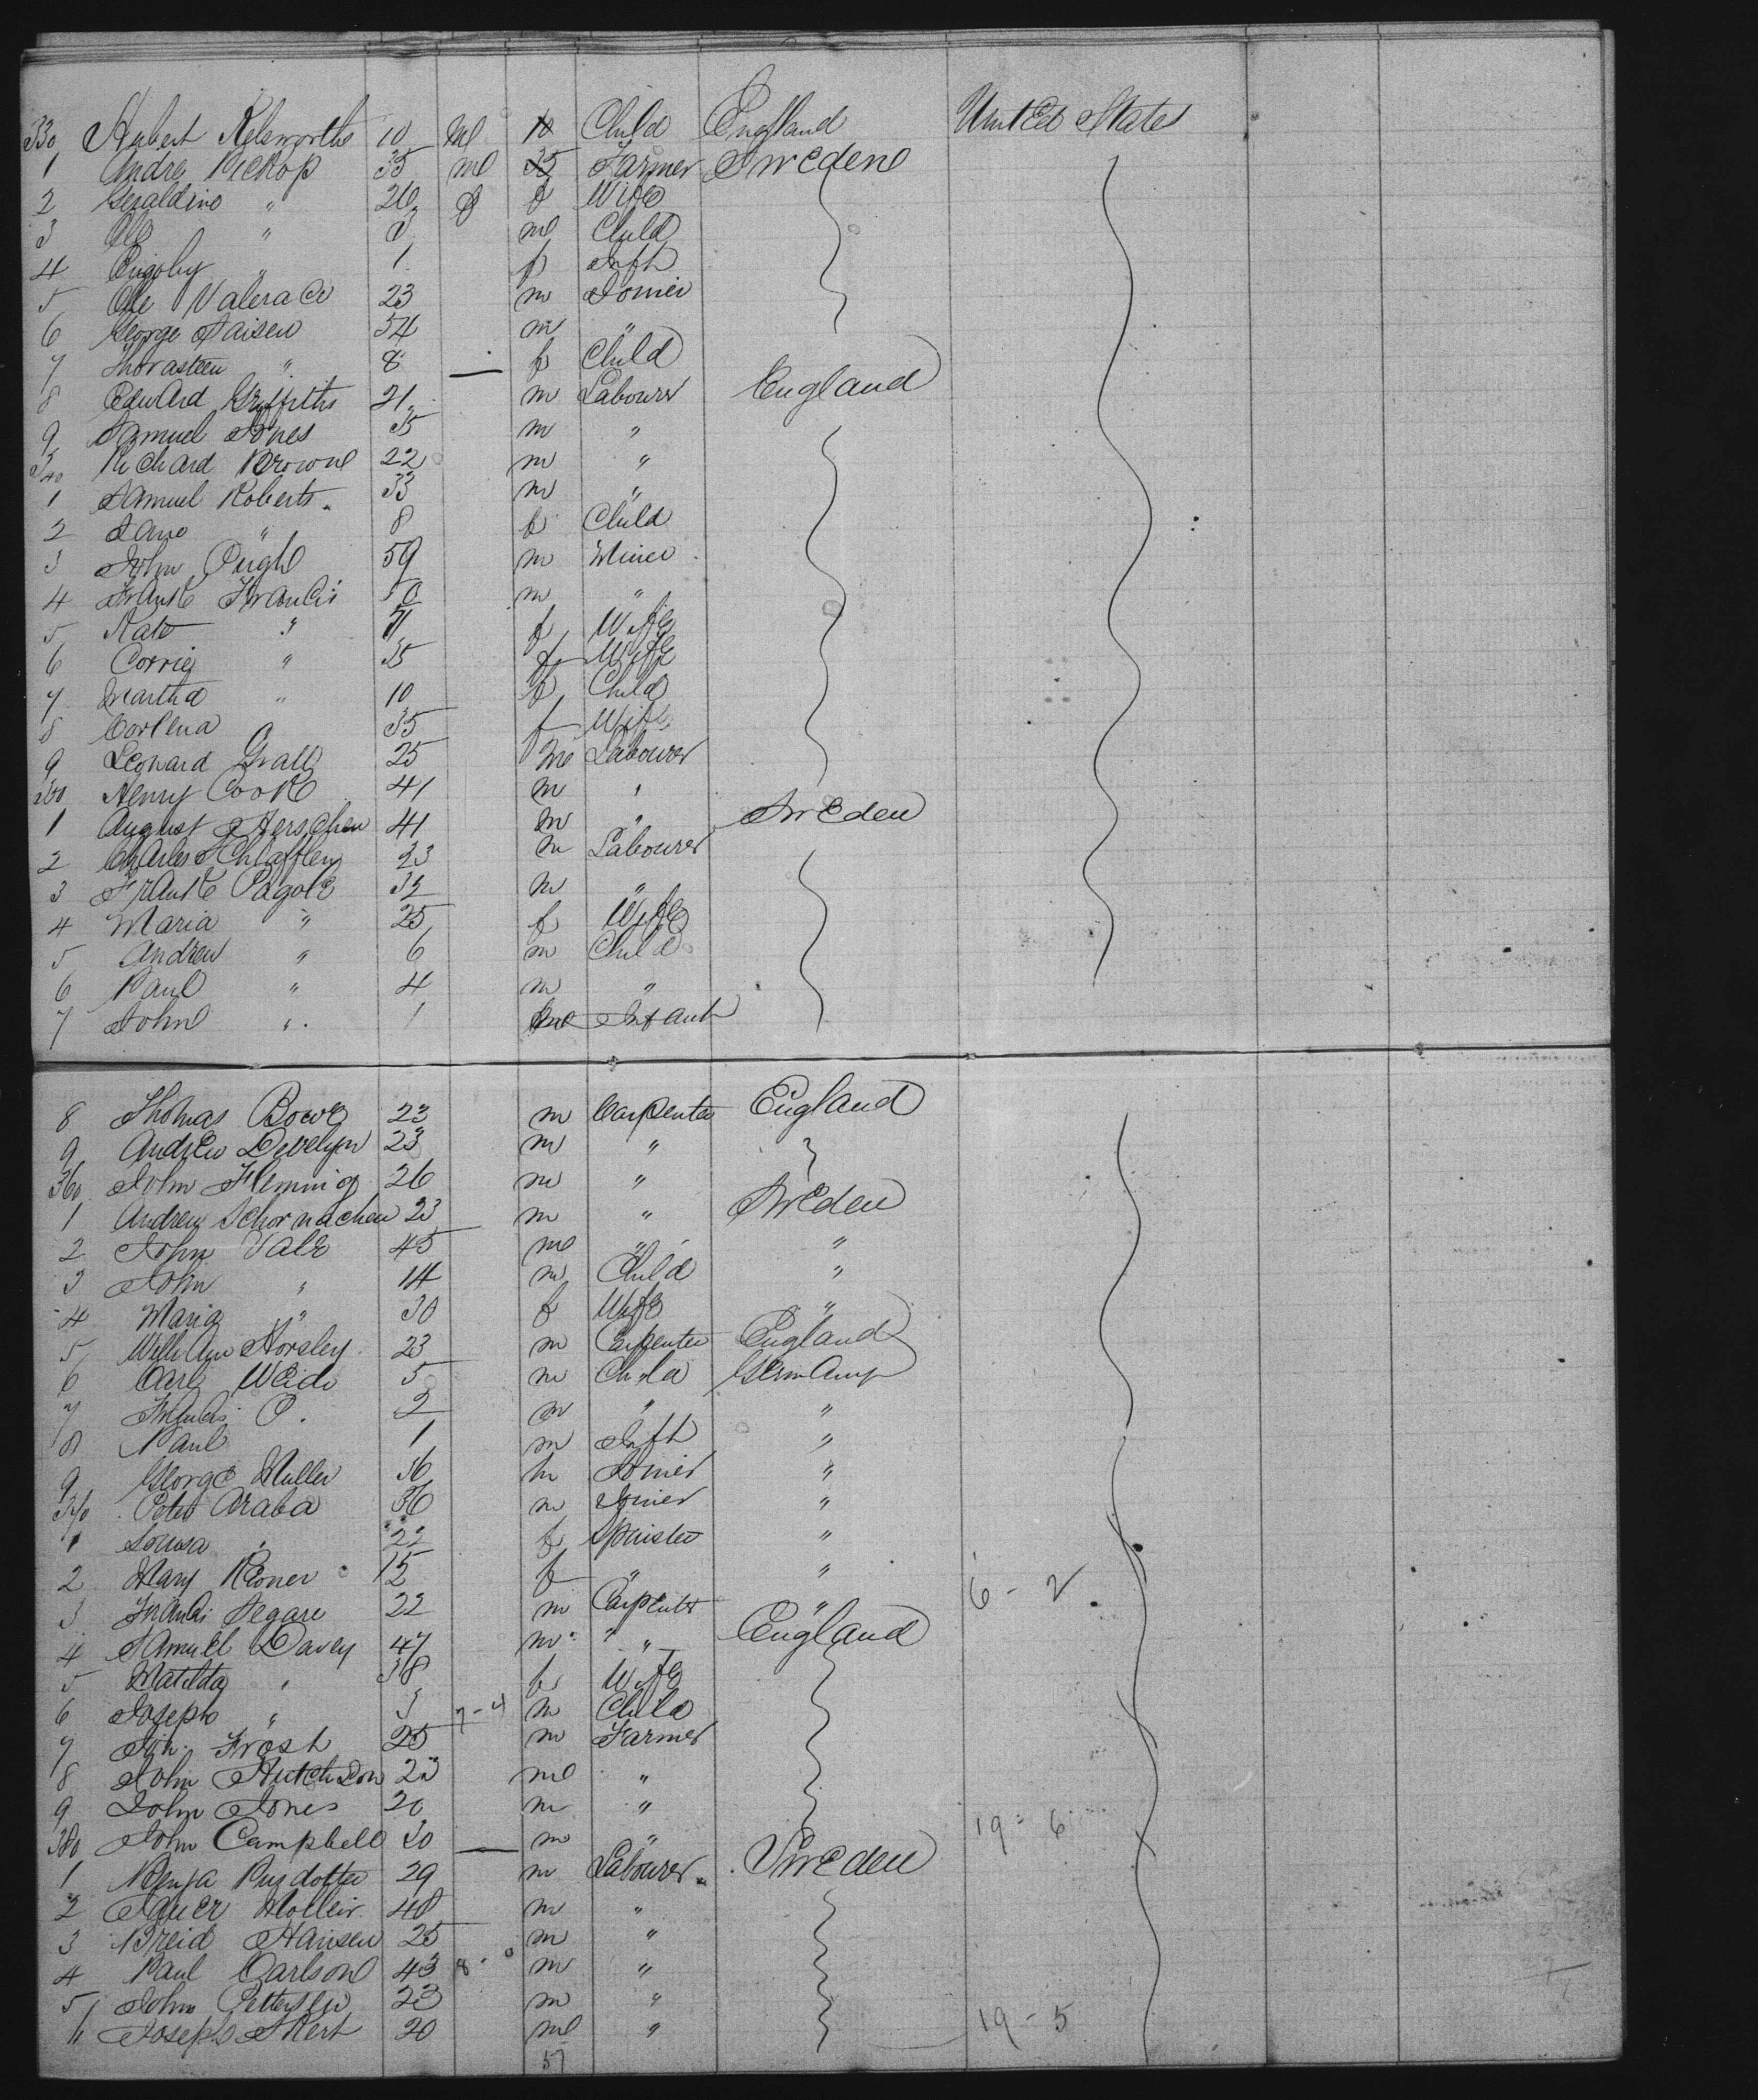 330 Hubert Kelsworths 10 M 10 Child England United States
1 Andre Pickop 35 m 35 Farmer Sweden
2 Geraldine " 26 f f Wife
3 " 8 m Child
4 " 1 f Inft
5 Ole 23 m Joiner
6 George 54 m "
7 Thorasteen " 8 — f Child
8 Edward Griffiths 21 m Labourer England
9 Samuel Jones 35 m "
340 Richard Brown 22 m "
1 Samuel Roberts 33 m "
2 Jane " 8 f Child
3 John Pugh 59 m Miner
4 Frank Francis 50 m "
5 Kate " f Wife
6 Corrie " 35 f Wife
7 Martha " 10 f Child
8 35 f Wife
9 Leonard 25 m Labourer
350 Henry Cook 41 m "
1 August 41 m " Sweden
2 Charles 23 m Labourer
3 Frank Pagole 32 m "
4 Maria " 25 f Wife
5 Andrew " 6 m Child
6 Paul " 4 m "
7 John " 1 m Infant
8 Thomas Bowe 23 m Carpenter England
9 Andrew Develyn 23 m "
360 John Fleming 26 m "
1 Andrew Schornachen 23 m " Sweden
2 John Vale 45 m " "
3 John " 14 m Child "
4 Maria " 30 f Wife "
5 William Horsley 23 m Carpenter England
6 Carl Weide 5 m Child Germany
7 Francis O. 2 m " "
8 Paul 1 m Inft "
9 George Muller 36 m Joiner "
370 Peter Araba 36 m Joiner "
1 Louisa " 22 f Spinster "
2 Mary 15 f " " 6 - 2
3 Francis Segare 22 m Carpenter "
4 Samuel Davey 47 m " England
5 Matilda " 38 f Wife
6 Joseph " 3 7-4 m Child
7 Jno. Frost 25 m Farmer
8 John Hutchison 23 m "
9 John Jones 20 m " 19 - 6
380 John Campbell 30 — m "
1 29 m Labourer Sweden
2 40 m "
3 Breid Hansen 25 m "
4 Paul Carlson 43 8 - 0 m "
5 John Pettersen 23 m "
6 Joseph 20 m " 19 - 5
57